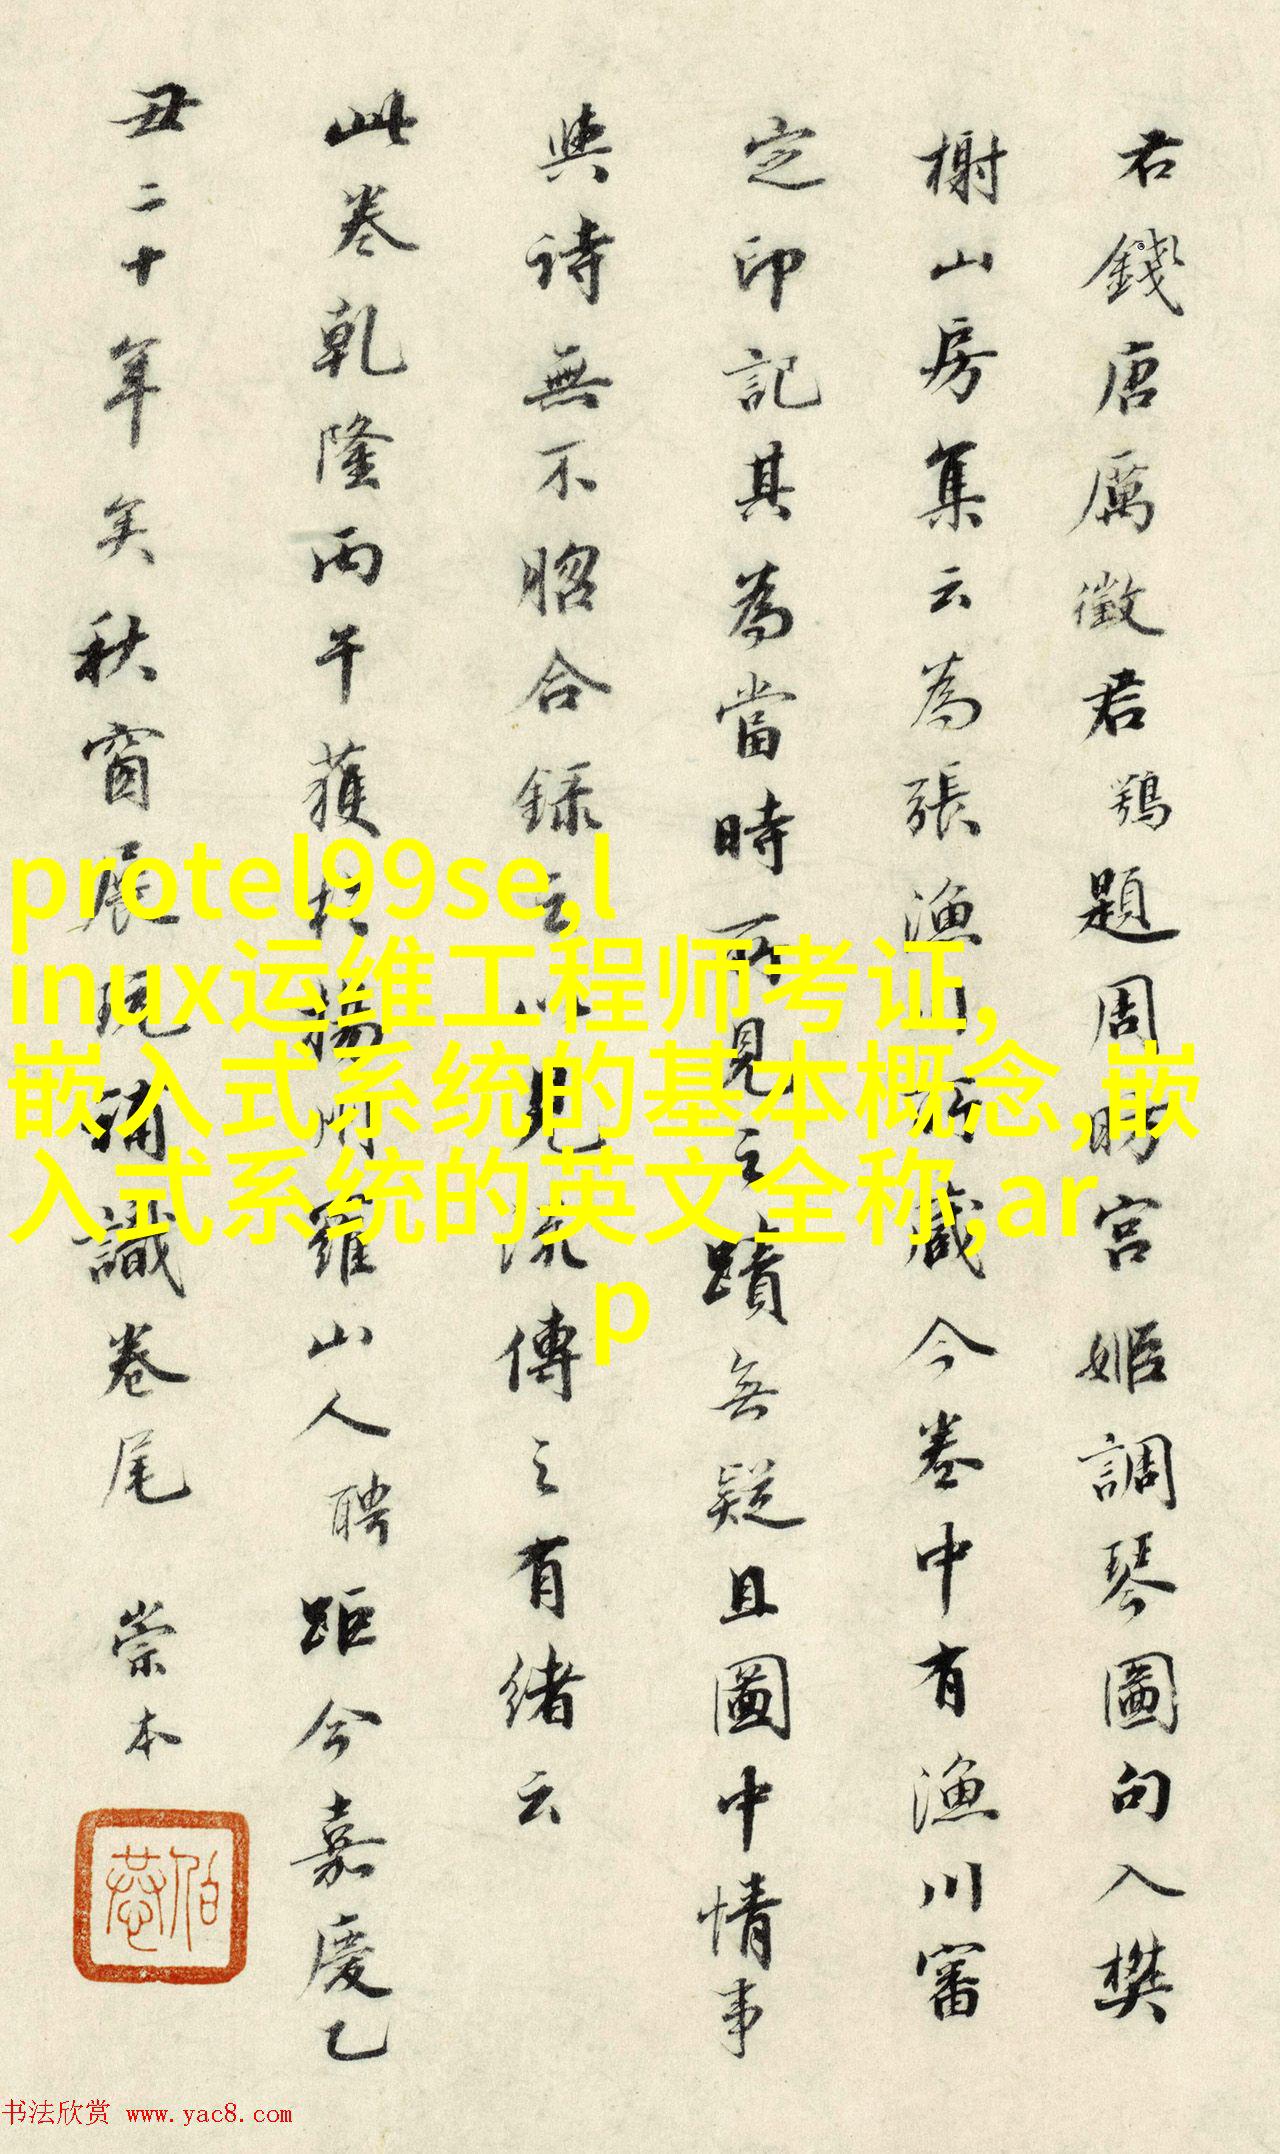 君錢唐厲徵君鶚題周昉宮姬調琴圖句入樊
榭山房集云為張漁川所藏今卷中有漁川審
定印記其為當時所見之蹟無疑且圖中情事
與詩無不昭合錄之以見流傳之有緒云
此卷乾隆丙午獲於揚州羅山人聘距今嘉慶乙
丑二十年矣秋窗展玩補識卷尾 崇本
protel99se,l
inux运维工程师考证,
嵌入式系统的基本概念,嵌
入式系统的英文全称,ar
p
书法欣赏 www.yac8.com